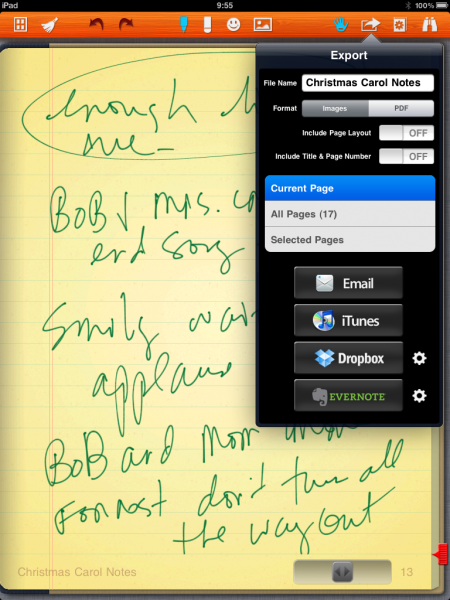 iPad
9:55
100%
Export
File Name Christmas Carol Notes
Format Images PDF
Include Page Layout OFF
Include Title & Page Number OFF
Current Page
All Pages (17)
Selected Pages
Email
iTunes
Dropbox
EVERNOTE
enough
me-
BOB & MRS.
end song
Smily
applause
BOB and Mom
FORMOST don't turn all
the way out
Christmas Carol Notes
13